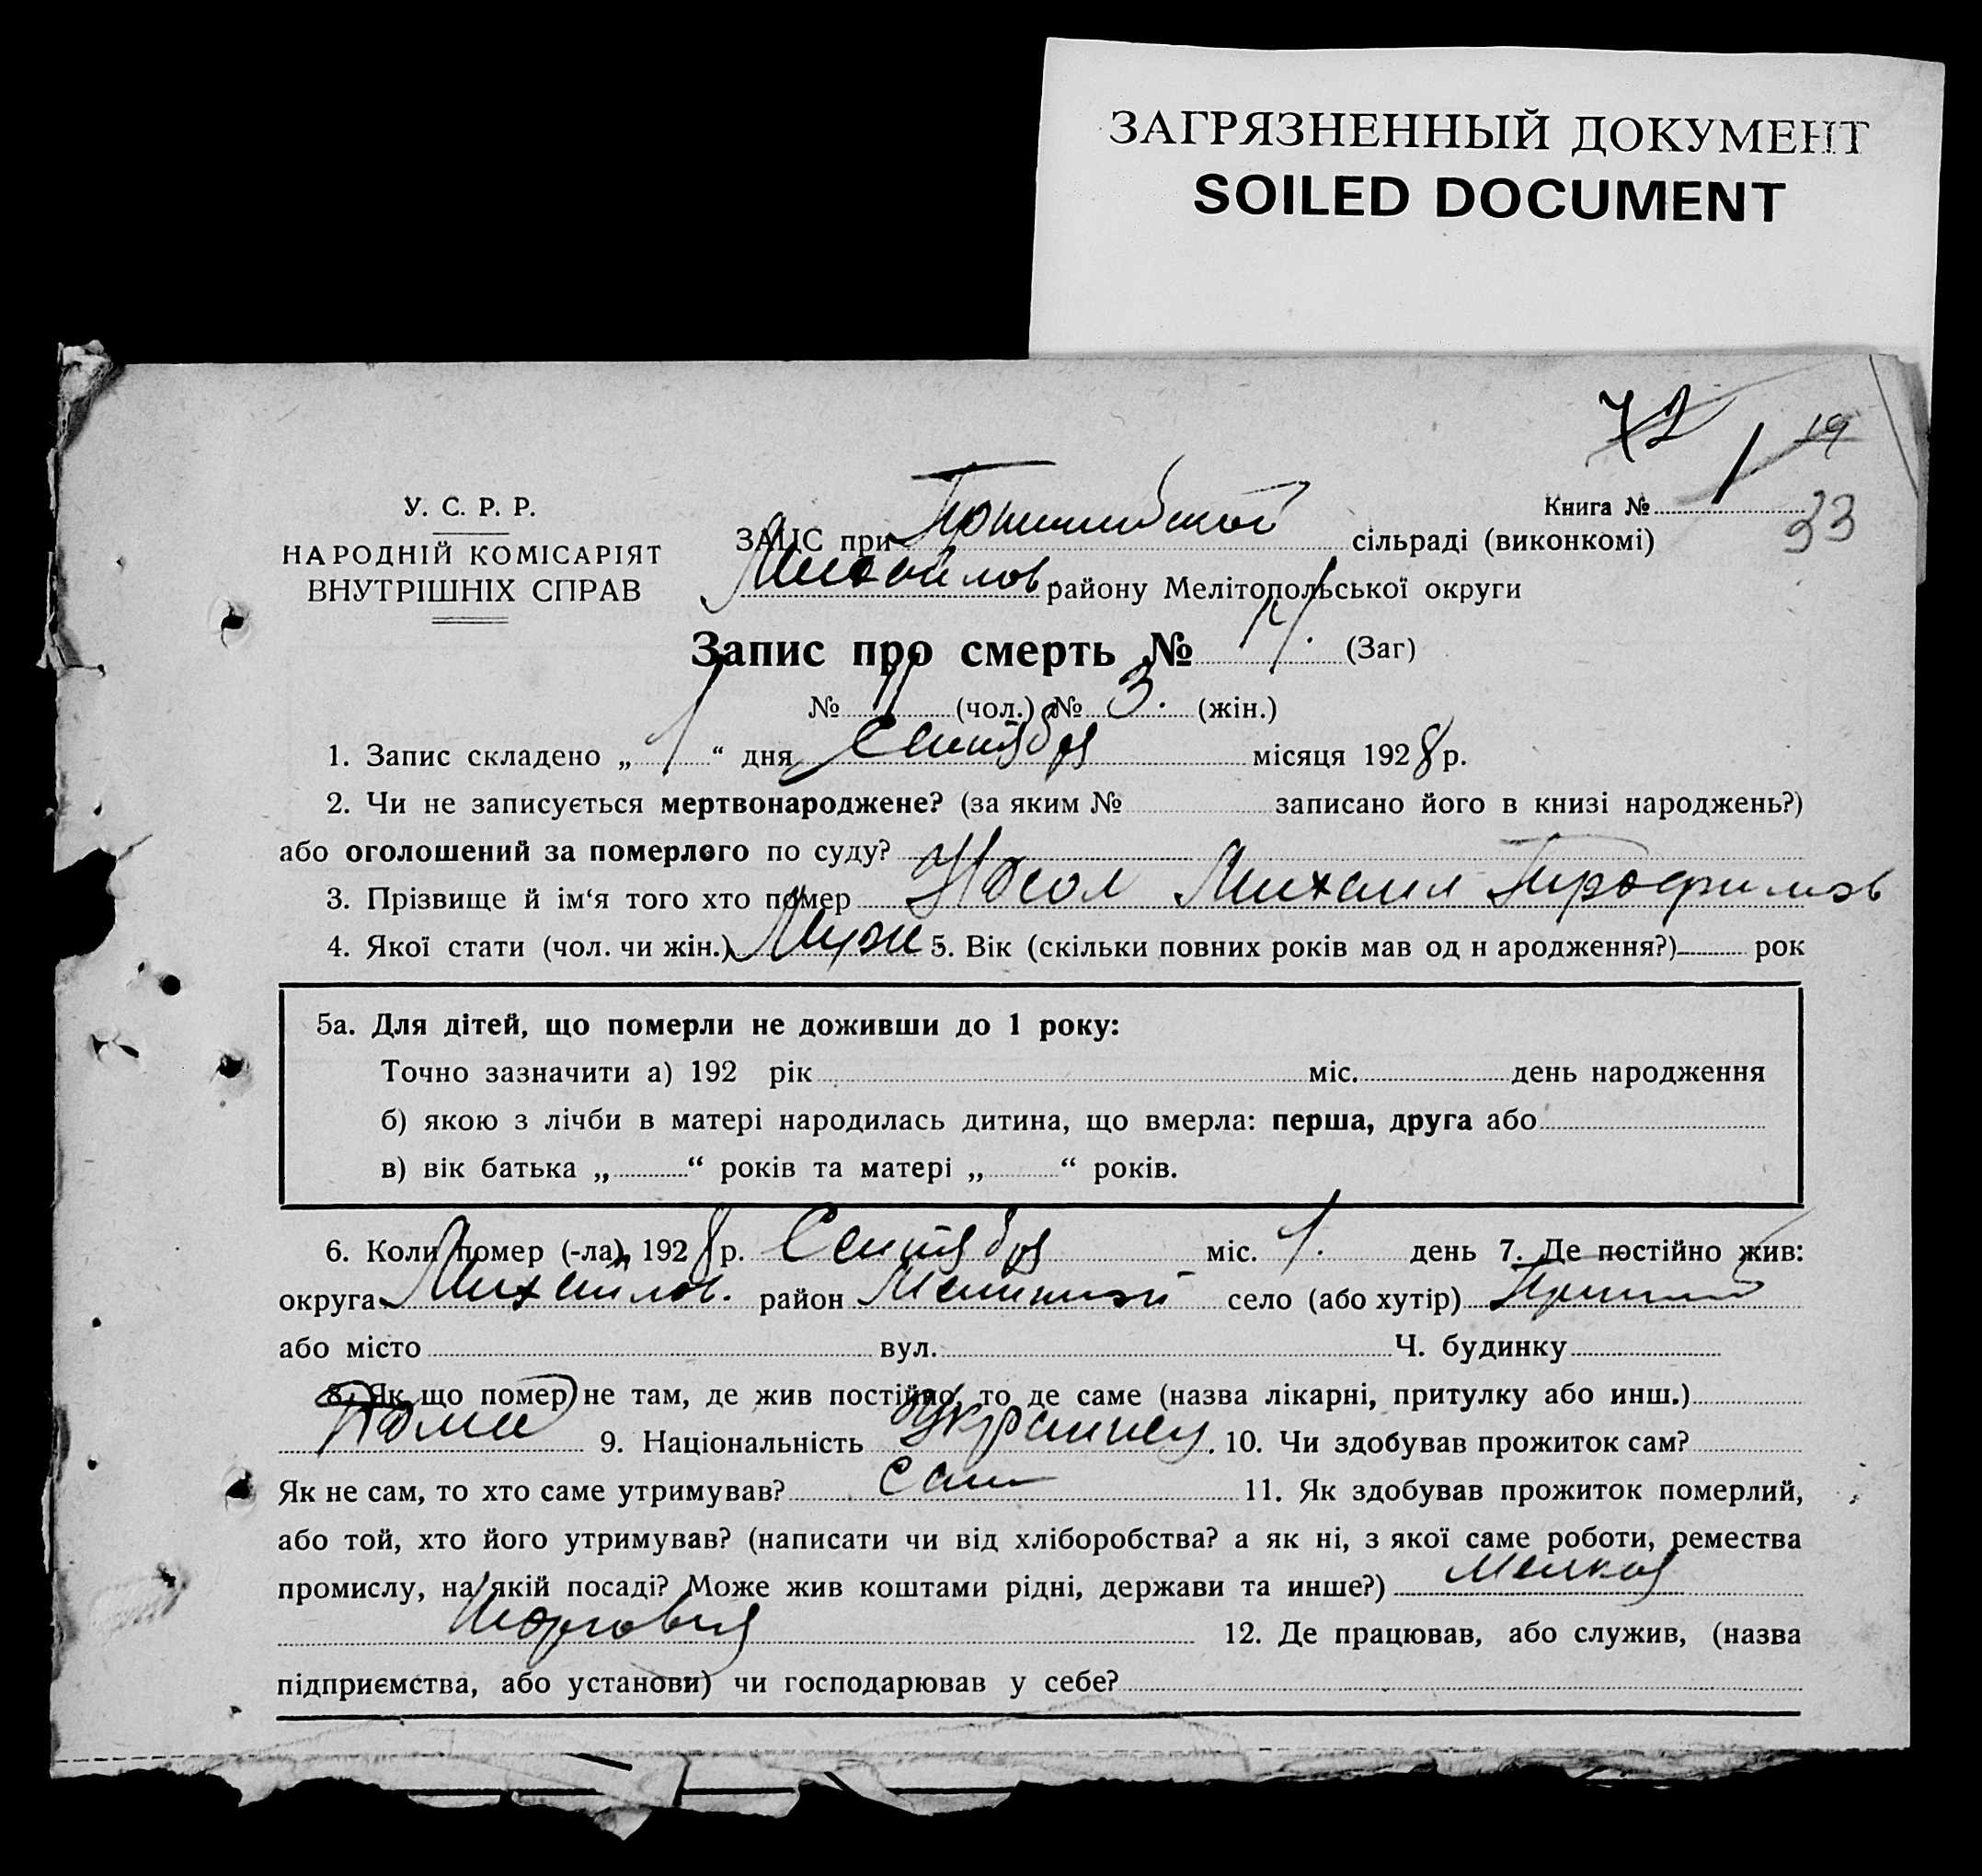 ЗАГРЯЗНЕННЫЙ ДОКУМЕНТ
SOILED DOCUMENT
72
1 19
33
У. С. Р. Р.
НАРОДНІЙ КОМІСАРІЯТ
ВНУТРІШНІХ СПРАВ
Книга №
ЗАЦС при Пришибской сільраді (виконкомі)
Михайлов. району Мелітопольської округи
Запис про смерть № (Заг)
№ 11 (чол.) № 3. (жін.)
1. Запис складено „ 1 “ дня Сентября місяця 1928 р.
2. Чи не записується мертвонароджене? (за яким № записано його в книзі народжень?)
або оголошений за померлого по суду?
3. Прізвище й ім‘я того хто помер Михаил Трофимов
4. Якої стати (чол. чи жін.) Муж 5. Вік (скільки повних років мав од н ародження?) рок
5а. Для дітей, що померли не доживши до 1 року:
Точно зазначити а) 192 рік міс. день народження
б) якою з лічби в матері народилась дитина, що вмерла: перша, друга або
в) вік батька „ “ років та матері „ “ років.
6. Коли помер (-ла) 1928 р. Сентября міс. 1. день 7. Де постійно жив:
округа Михайлов. район село (або хутір) Пришиб
або місто вул. Ч. будинку
8. Як що помер не там, де жив постійно, то де саме (назва лікарні, притулку або инш.)
Дома 9. Національність Украинец. 10. Чи здобував прожиток сам?
Як не сам, то хто саме утримував? Сам 11. Як здобував прожиток померлий,
або той, хто його утримував? (написати чи від хліборобства? а як ні, з якої саме роботи, ремества
промислу, на якій посаді? Може жив коштами рідні, держави та инше?) Мелкая
торговля 12. Де працював, або служив, (назва
підприємства, або установи) чи господарював у себе?